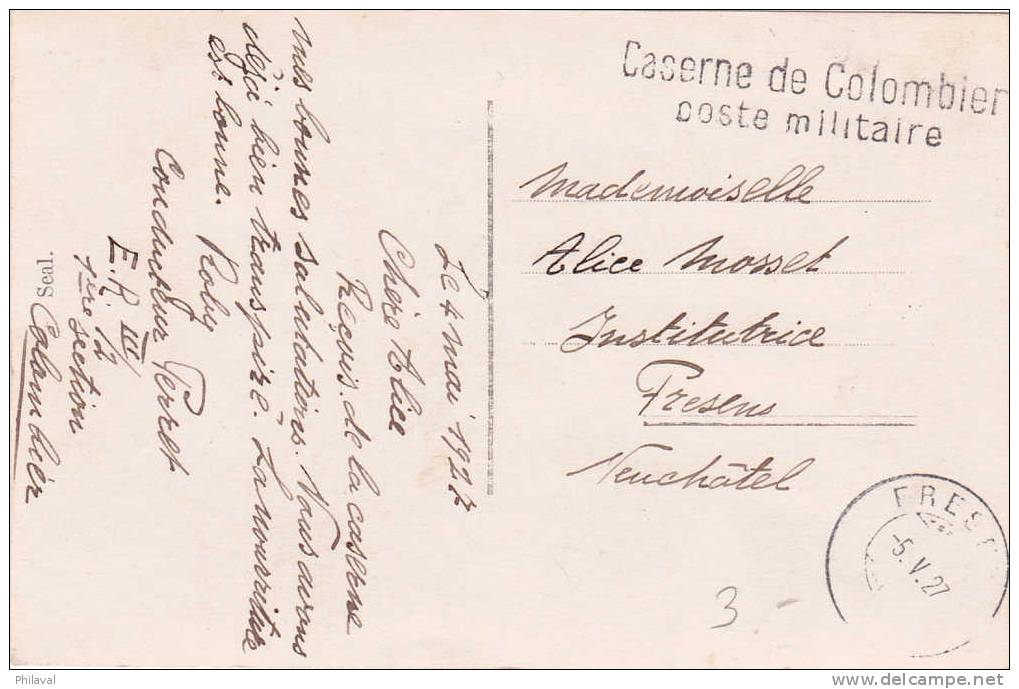 Caserne de Colombier
poste militaire
Mademoiselle
Alice Mosset
Institutrice
Fresens
Neuchâtel
FRES
-5.V.27
3 -
Le 4 mai 1927
Chère Alice
Reçois de la caserne
mes bonnes salutations. Nous avons
déjà bien transpiré. La nourriture
est bonne.
Roby
Conducteur Perret
E.R. III
1ère section
Colombier
Seal.
Philaval
www.delcampe.net